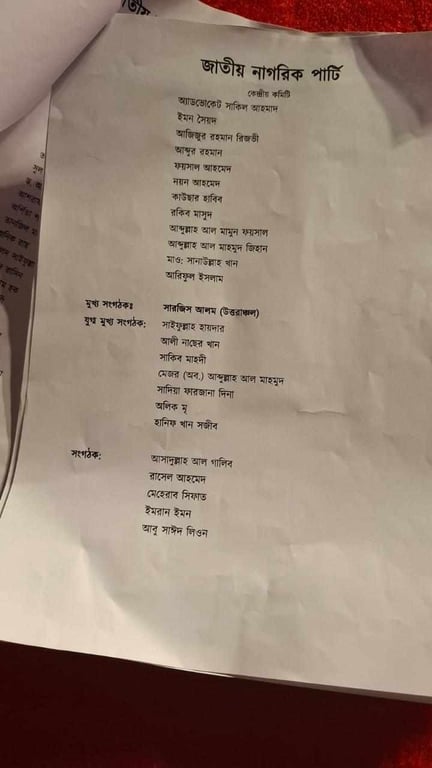 জাতীয় নাগরিক পার্টি
কেন্দ্রীয় কমিটি
অ্যাডভোকেট সাকিল আহমাদ
ইমন সৈয়দ
আজিজুর রহমান রিজভী
আব্দুর রহমান
ফয়সাল আহমেদ
নয়ন আহমেদ
কাউছার হাবিব
রকিব মাসুদ
আব্দুল্লাহ আল মামুন ফয়সাল
আব্দুল্লাহ আল মাহমুদ জিহান
মাও: সানাউল্লাহ খান
আরিফুল ইসলাম
মুখ্য সংগঠকঃ সারজিস আলম (উত্তরাঞ্চল)
যুগ্ম মুখ্য সংগঠক: সাইফুল্লাহ হায়দার
আলী নাছের খান
সাকিব মাহদী
মেজর (অব.) আব্দুল্লাহ আল মাহমুদ
সাদিয়া ফারজানা দিনা
অলিক মৃ
হানিফ খান সজীব
সংগঠক: আসাদুল্লাহ আল গালিব
রাসেল আহমেদ
মেহেরাব সিফাত
ইমরান ইমন
আবু সাঈদ লিওন